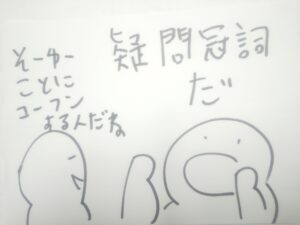 疑問冠詞
だ
そーゆー
ことに
コーフン
する人だね